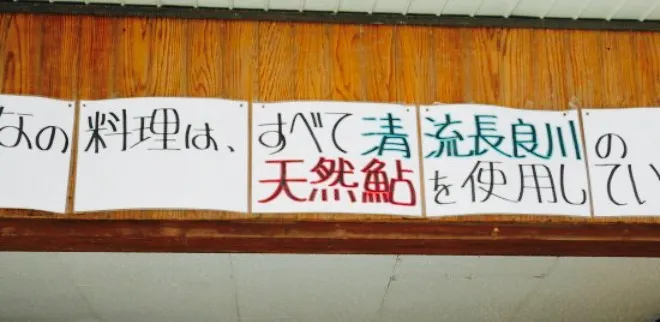 なの料理は、すべて清流長良川の
天然鮎を使用してい